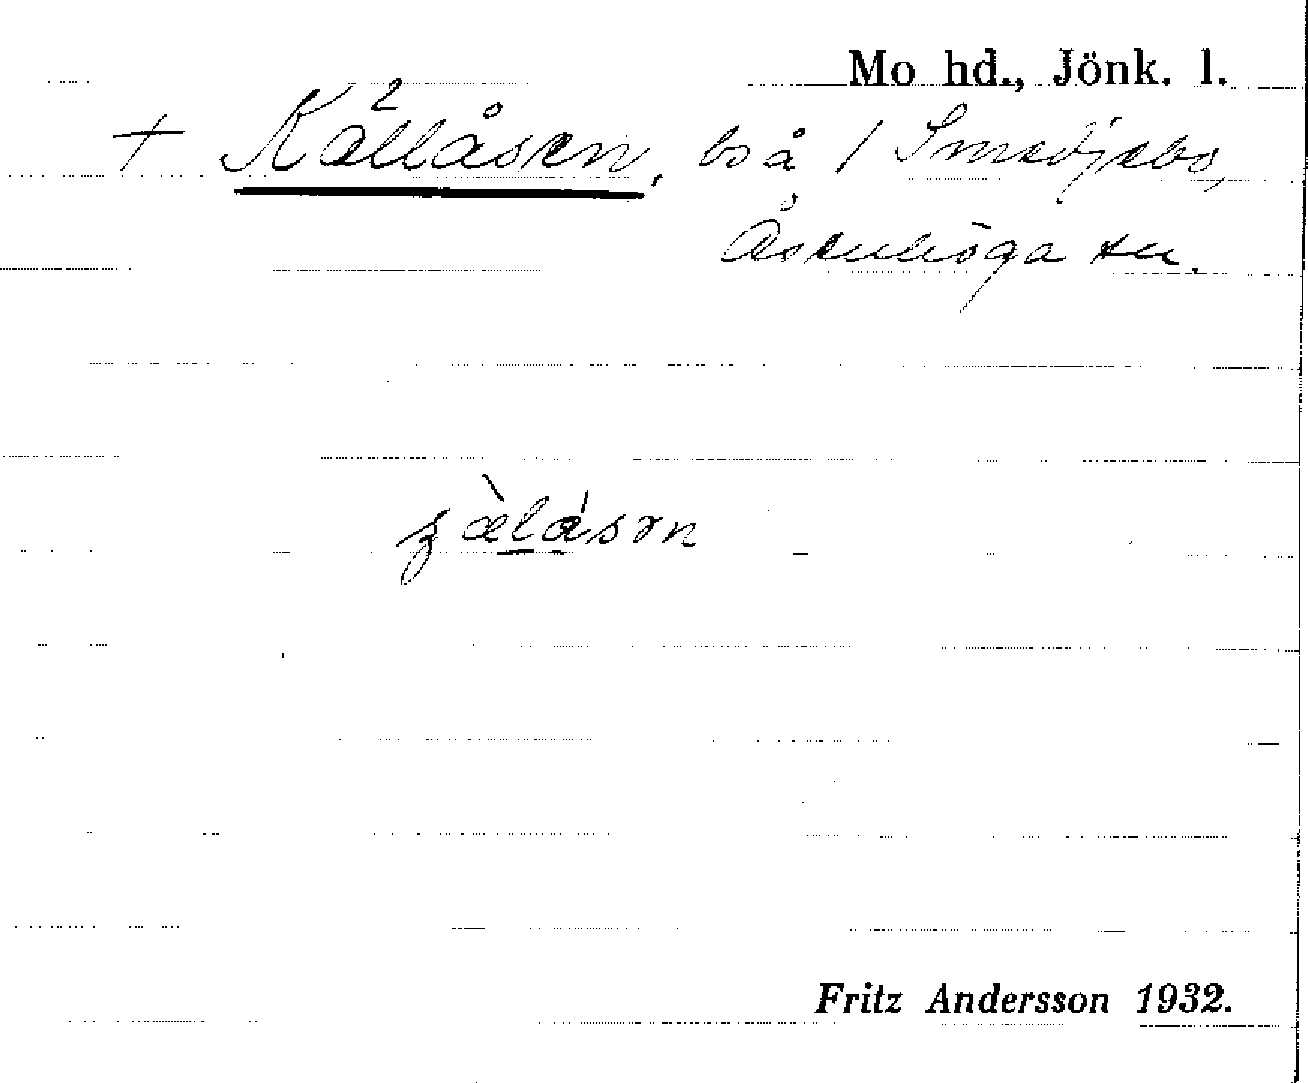 Mo hd., Jönk. l.
+ Källåsen, bs å / Smedjebo,
Åsenhöga sn.
Fritz Andersson 1932.